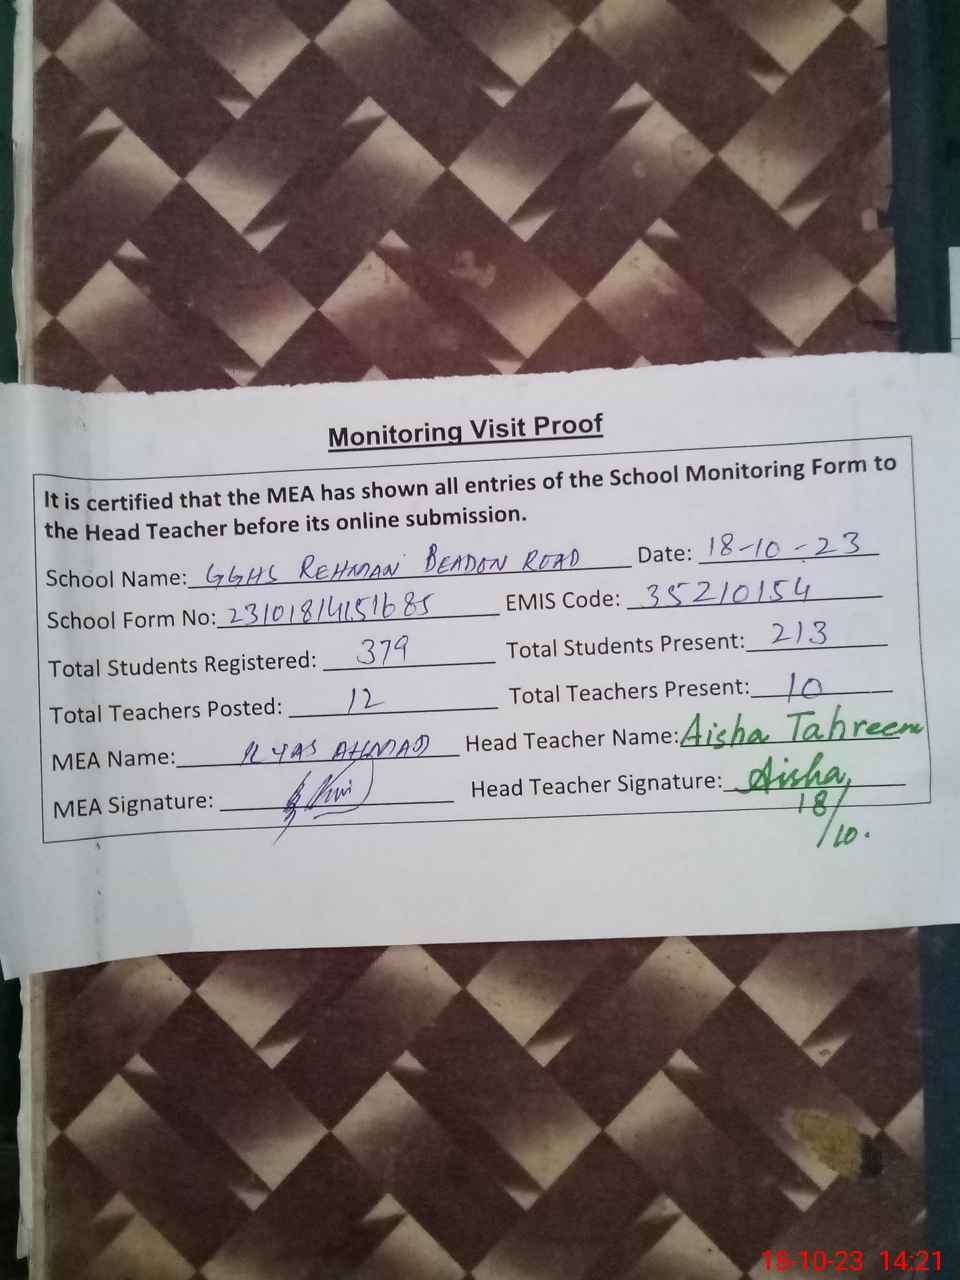 Monitoring Visit Proof
It is certified that the MEA has shown all entries of the School Monitoring Form to
the Head Teacher before its online submission.
School Name: GGHS REHMAN BEADON ROAD Date: 18-10-23
School Form No: 23101814151685 EMIS Code: 35210154
Total Students Registered: 379 Total Students Present: 213
Total Teachers Posted: 12 Total Teachers Present: 10
MEA Name: ILYAS AHMAD Head Teacher Name: Aisha Tahreem
MEA Signature: Head Teacher Signature: Aisha,
18/10.
18-10-23 14:21